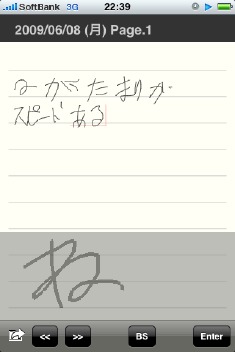 SoftBank 3G 22:39
2009/06/08 (月) Page.1
がたまりが
スピードある
ね
<< >> BS Enter